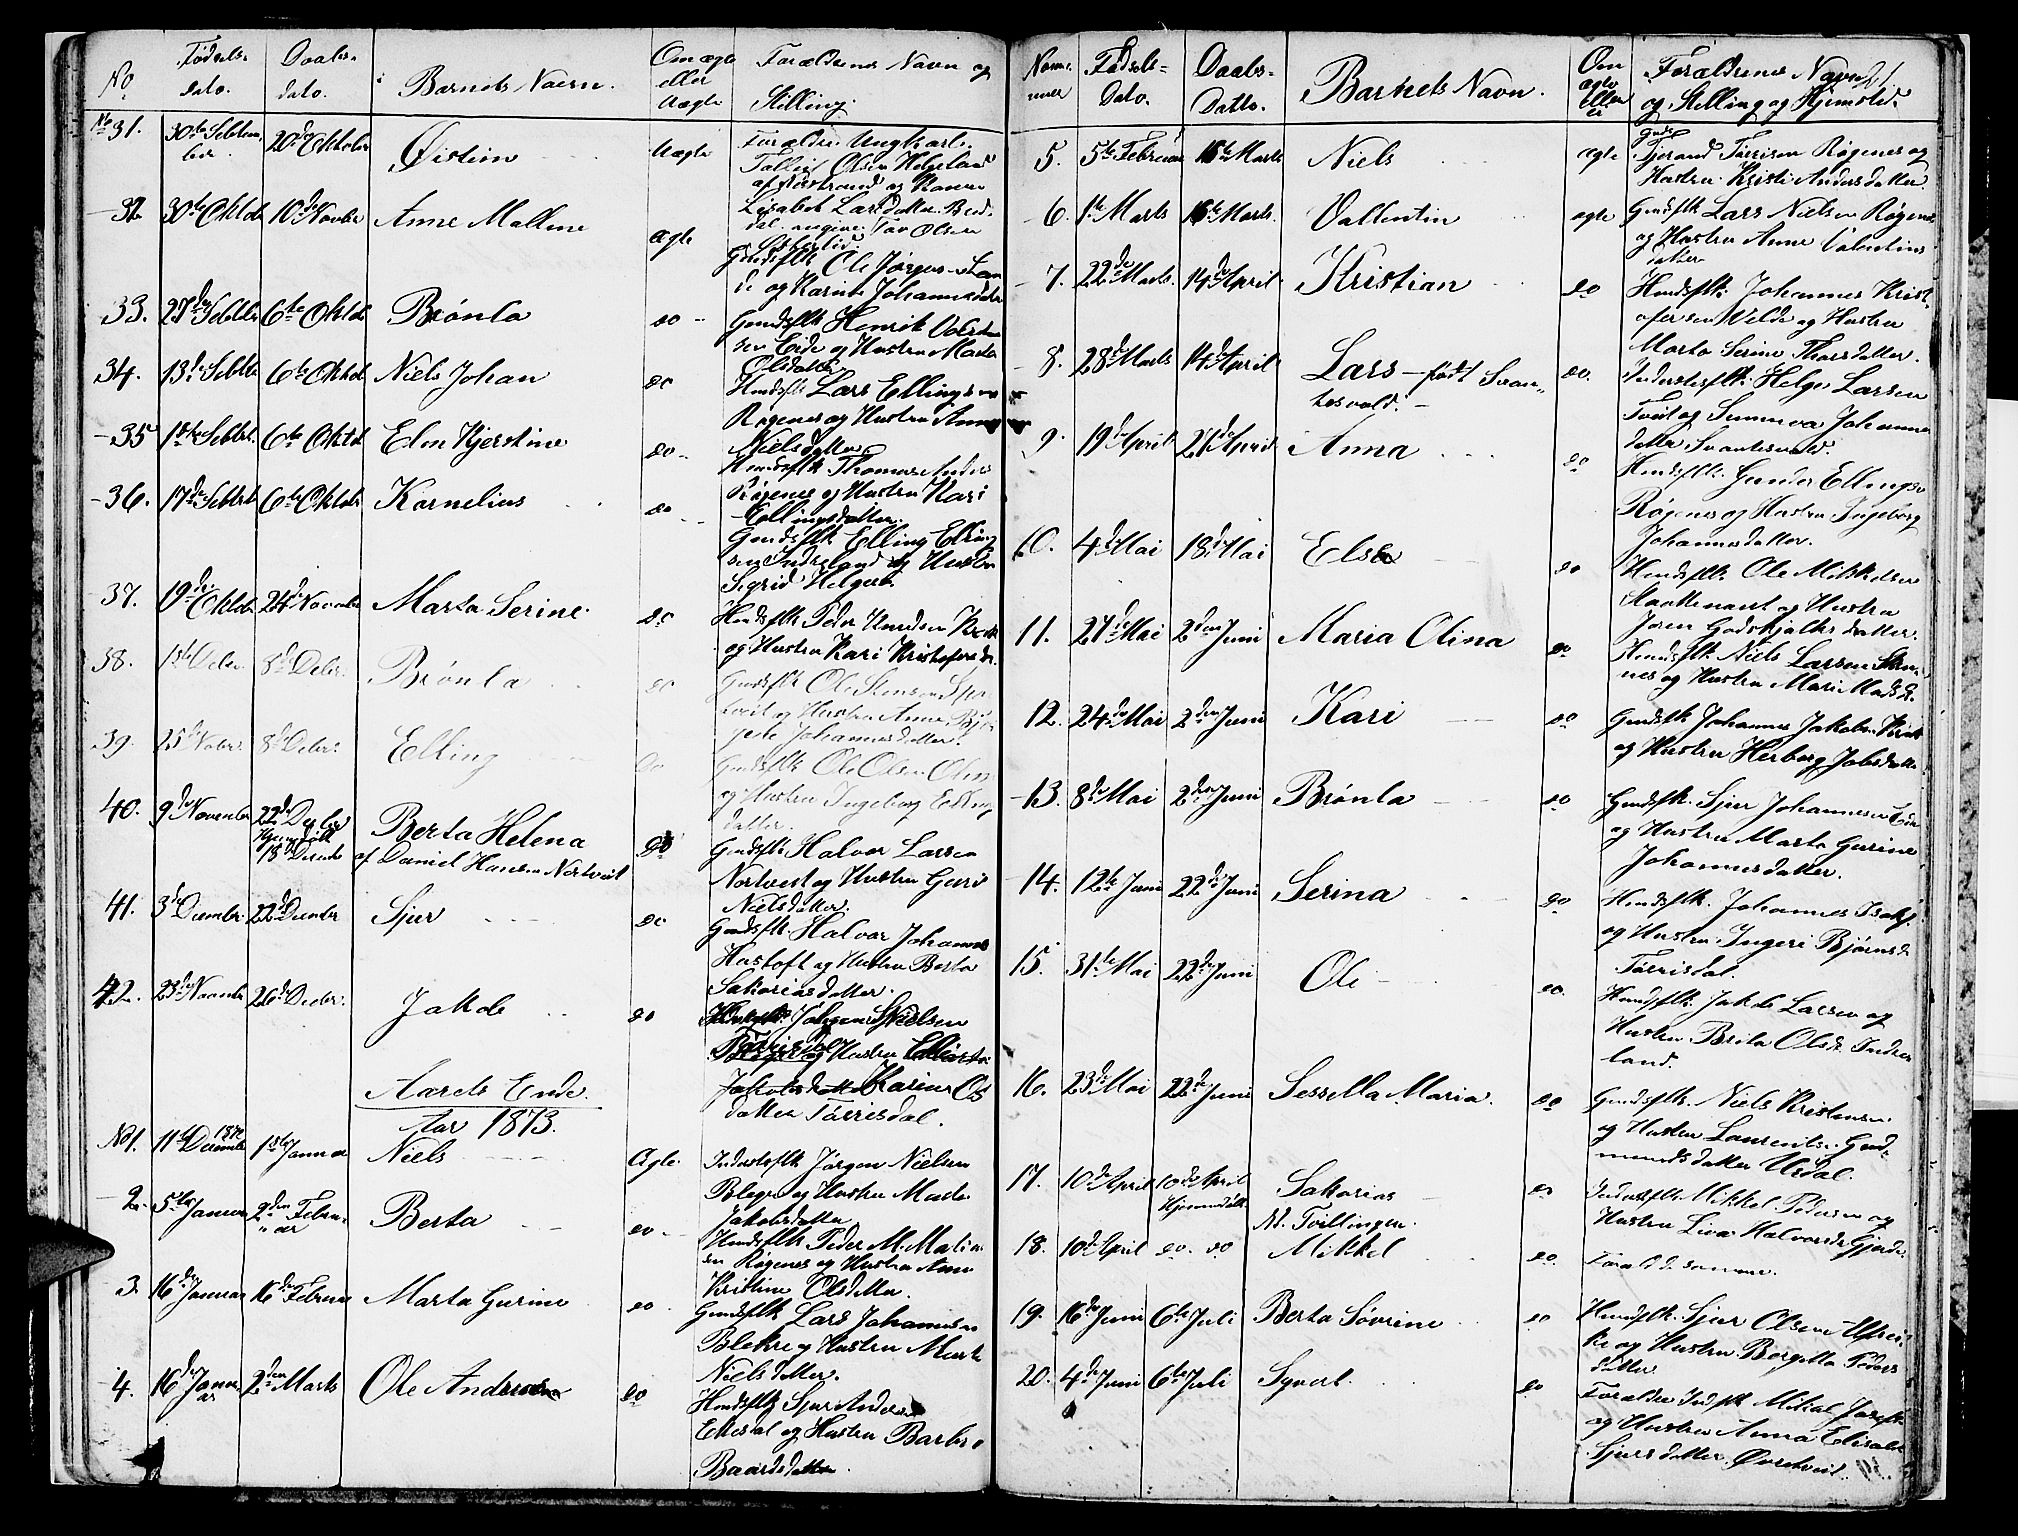 No
Fødsels-
dato.
Daabs-
dato.
Barnets Navn.
Om ægte
eller
Uægte
Forældrene Navn og
Stilling.
No 31.
30te Septem
ber
20de Oktober
Øistein
Uægte
Forældre Ungkarl
Tollig Olsen Helgeland
og
Lisabet Larsdatter
32
30te Oktob
10de Novbr
Anne Malline
ægte
Gmdsflk Ole Jørgensen
og Karine Johannesdatter
33.
27de Septbr
6te Oktob
Brønla
do
Gmdsflk Henrik
sen Eide og Hustru Marta
Olsdatter
34.
13de Septbr
6te Oktob
Niels Johan
do
Hmdsflk Lars Ellingsen
Røgenes og Hustru Anna
Nielsdatter
35
6te Oktb
Elen Kjerstine
do
Hmdsflk Thomas Anders
Røgenes og Hustru Kari
Ellingsdatter.
36.
17de Septbr
6te Oktob
Kornelius
do
Gmdsflk Elling Elling
sen Indreland og Hustru
Sigrid Helgesd.
37.
19de Oktob
24de Novembr
Marta Serine.
do
Hmdsflk Peder Knudsen
og Hustru Kari Kristofersd.
38.
1ste Debr.
8de Debr.
Brønla
do
Gmdsflk Ole
og Hustru Anne
Johannesdatter.
39.
25de Nobr.
8de Debr.
Elling
do
Gmdsflk Ole Olsen
og Hustru Ingeborg Elling
datter.
40.
9de Novembr
22de Decbr
Hjemdøbt
18de Decbr
Berta Helena
af Daniel Hansen Nortveit
do
Gmdsflk Halvor Larsen
Nortveit og Hustru Guri
Nielsdatter.
41.
3de Decembr
22de Decembr
Sjur
do
Gmdsflk. Halvor Johannes
Hustoft og Hustru Berta
Sakariasdatter.
42.
23de Novembr
26de Decbr.
Jakob
do
Johannes Nielsen
Tørrisdal og Hustru
Jakobsdatter Karine Ols
datter Tørrisdal.
Aarets Ende.
Aar 1873.
No 1.
11te December 1872
1ste Januar
Niels
Ægte.
Inderstsflk Jørgen Nielsen
og Hustru Marta
Jakobsdatter
2.
5te Januar
2den Febru-
ar
Berta
do
Hmdsflk Peder M. Matia
sen Røgenes og Hustru Anne
Kristine Olsdatter.
3.
16de Januar
16de Februar
Marta Gurine
do
Gmdsflk Lars Johannesen
Blekre og Hustru Marta
Nielsdatter.
4.
16de Janu
ar
2den Marts
Ole Andreas
do
Hmdsflk Sjur Andersen
Ekesal og Hustru Barbro
Baardsdatter.
Num-
mer
Fødsels-
Dato.
Daabs-
Datto.
Barnets Navn.
Om
ægte
eller
ei
Forældrenes Navn
og Stilling og Hjemsted.
5.
5te Februar
16de Marts
Niels
ægte
Gmds
Tjerand Tørrisen Røgenes og
Hustru Kristi Andersdatter.
6.
1ste Marts
16de Marts.
Vallentin
ægte
Gmdsflk Lars Nielsen Røgenes
og Hustru Anne Valentins
datter
7.
22de Marts
14de April
Kristian
do
Hmdsflk: Johannes Krist-
ofersen Velde og Hustru
Marta Serine Thorsdatter.
8.
28de Marts
14de April
Lars - født Svan-
tesvold.
do.
Inderstsflk: Helge Larsen
Tveit og Sunneva Johannes
datter Svantesvold.
9.
19de April
27de April
Anna
do
Hmdsflk: Gunder Ellings
Røgenes og Hustru Ingeborg
Johannesdatter.
10.
4de Mai
18de Mai
Else
do
Hmdsflk: Ole Mikkelsen
og Hustru
Joren Godskjalksdatter.
11.
27de Mai
2den Juni
Maria Olina
do
Hmdsflk Niels Larsen
nes og Hustru Mari Madsd.
12.
24de Mai
2den Juni
Kari
do
Gmdsflk Johannes Jakobsen
og Hustru Herborg Jobsdatter
13.
8de Mai
2den Juni
Brønla
do
Gmdsflk. Sjur Johannesen
og Hustru Marta Gurine
Johannesdatter.
14.
12te Juni
22de Juni
Serina
do
Hmdsflk. Johannes Isaks
og Hustru Ingeri Bjørnsd.
Tørrisdal.
15.
31te Mai
22de Juni
Ole
do.
Hmdsflk. Jakob Larsen og
Hustru Brita Olsdr. Indre
land.
16.
23de Mai
22de Juni
Sessella Maria.
do
Gmdsflk. Niels Kristensen
og Hustru Laurentse Gud-
mundsdatter Urdal.
17.
10de April
10de April
Hjemmdøbt
Sakarias
Nt. Tvillinger.
do
Inderstsflk Mikkel Pedersen og
Hustru Liva Halvorsdr Gjerde
18.
10de April
do. do
Mikkel
do.
Forældr samme.
19.
16de Juni
6te Juli
Berta Søvrine
do
Hmdsflk. Sjur Olsen
og Hustru Bergitta Peders
datter
20.
4de Juni
6te Juli
Syvert
do
Forældre Indflk Mikal
og Hustru Anna Elisabe
Sjursdatter Øvretveit.